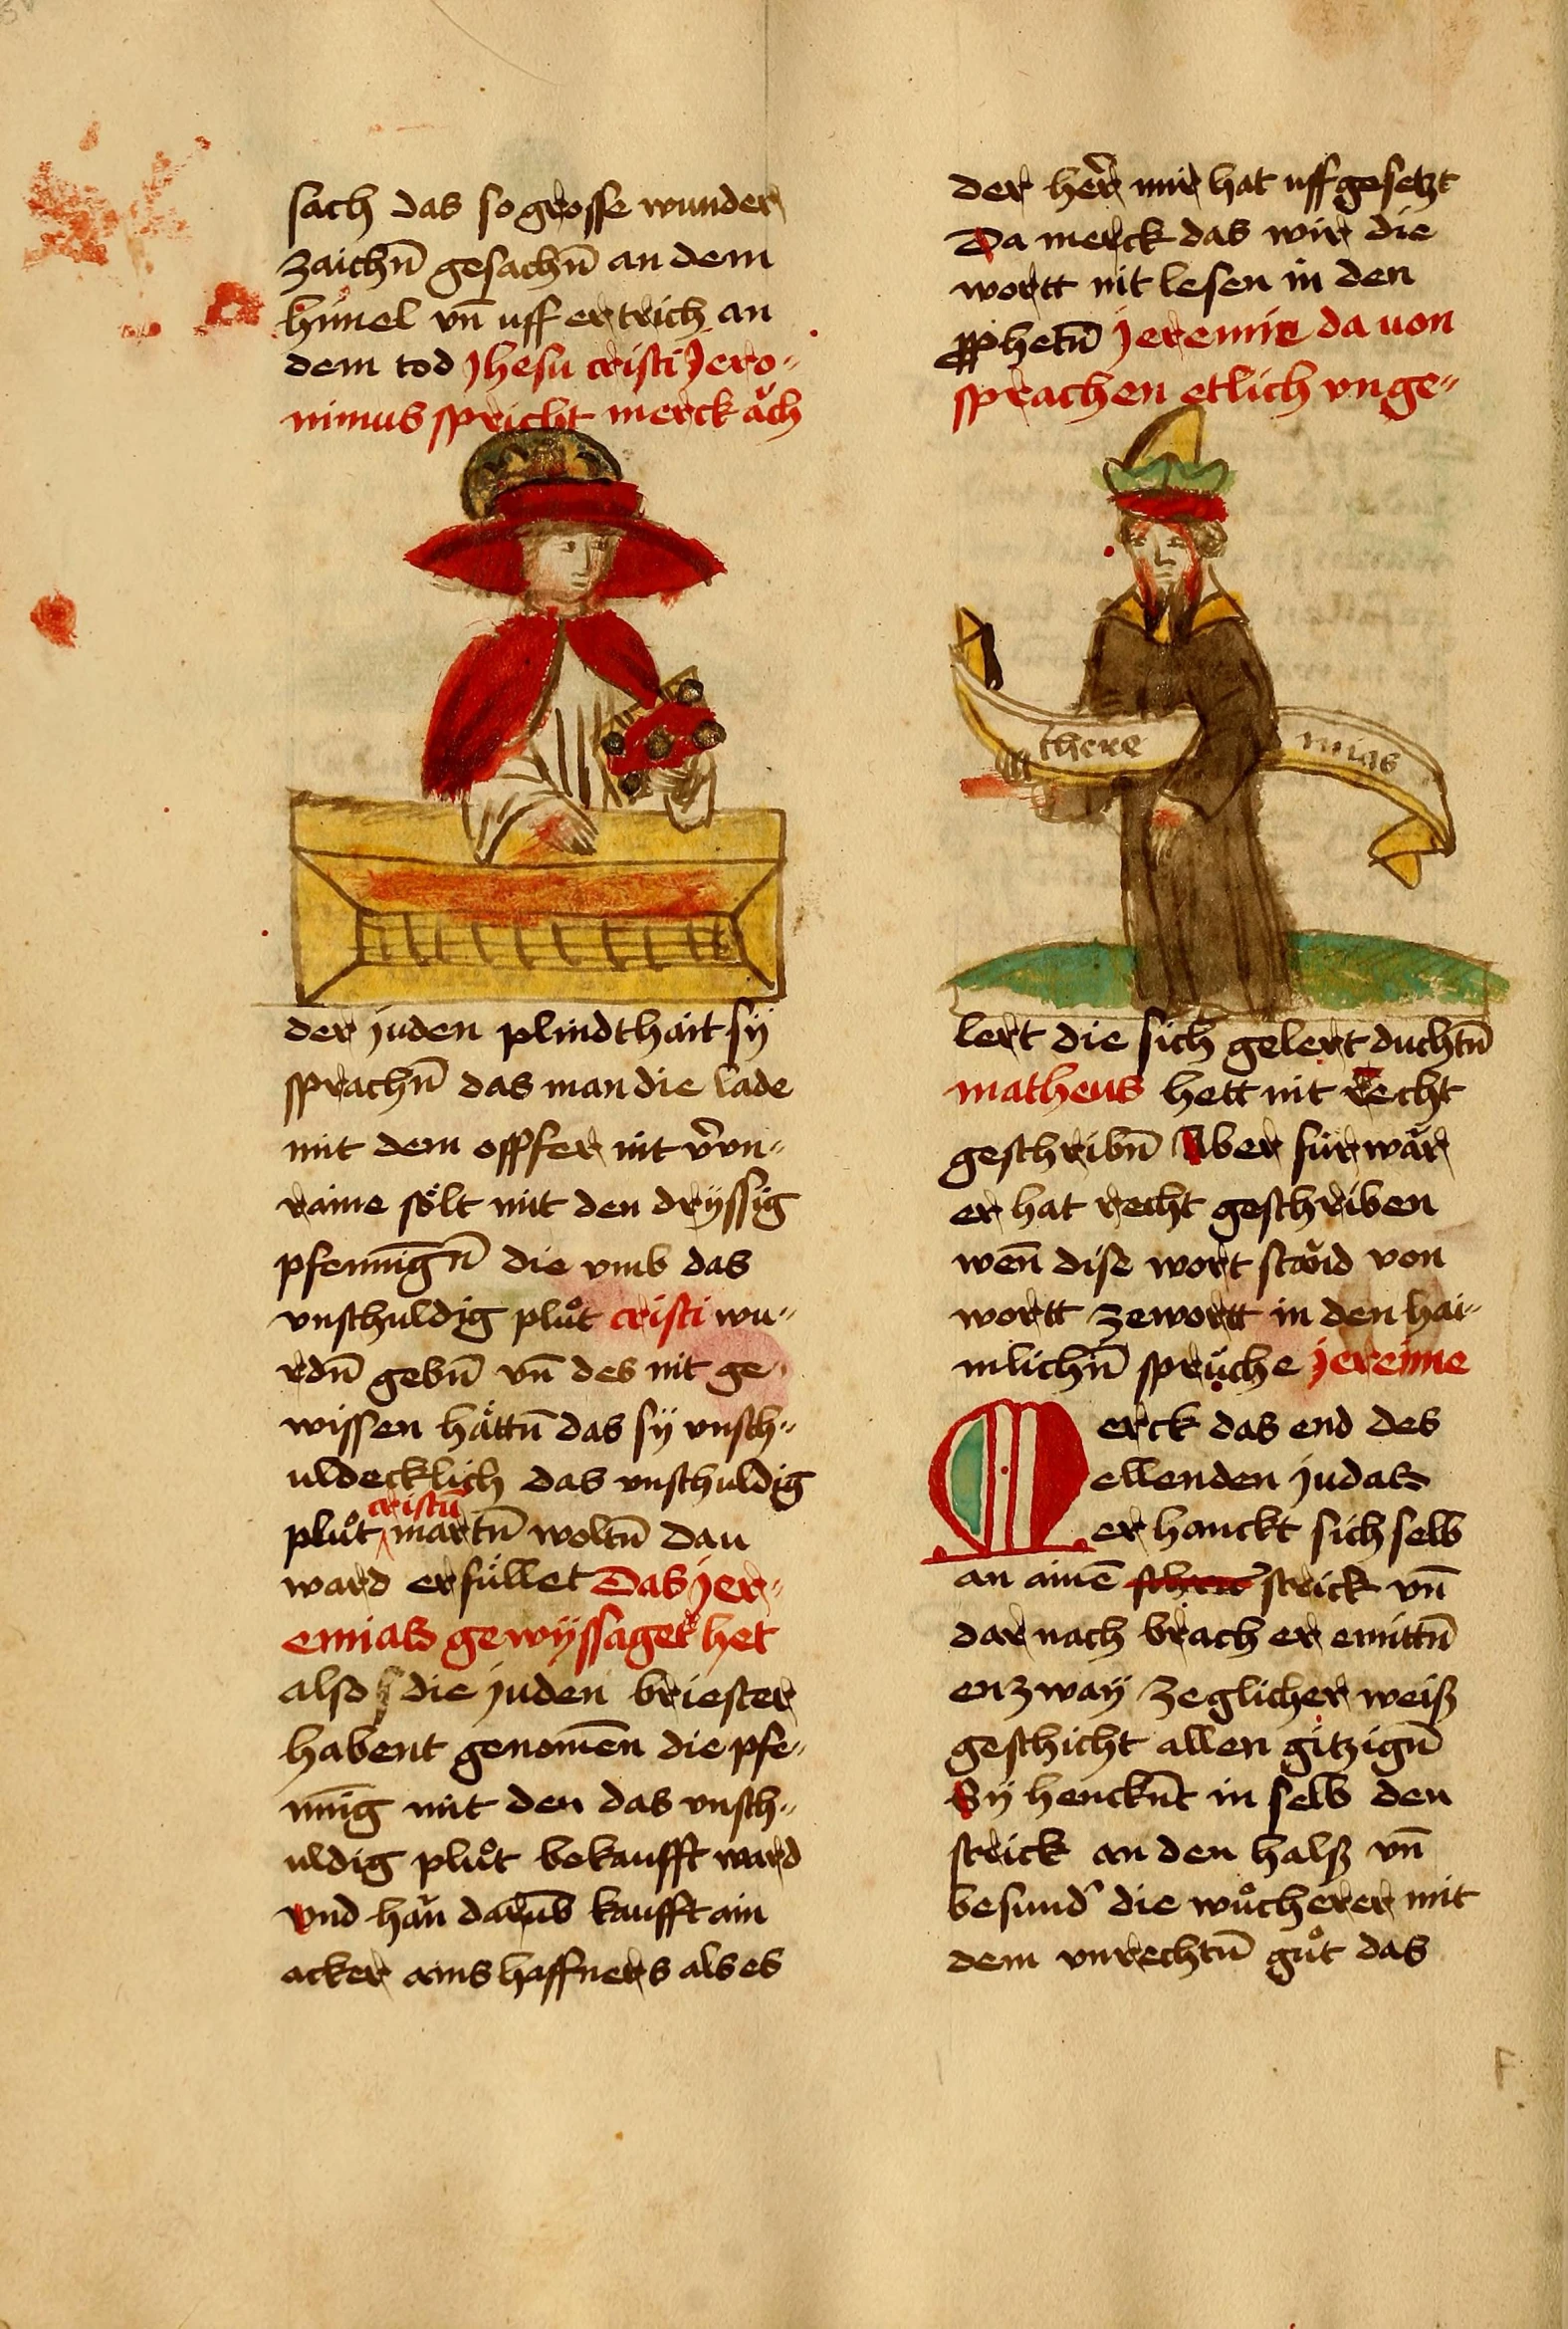 sach das so grosse wunder
zaichn̄ gesachn̄ an dem
himel vn̄ uff ertrich an
dem tod Jhesu cristi Jero-
nimus spricht merck aͮch
der juden plindthait sÿ
sprachn̄ das man die lade
mit dem opffer nit v̄vn-
raine sölt mit den drÿssig
pfennīgn̄ die vmb das
vnschuldig pluͦt cristi wu-
rdn̄ gebn̄ vn̄ des nit ge-
wissen hättn̄ das sÿ vnsch-
uldecklich das vnschuldig
cristū
pluͦt martn̄ woltn̄ Dau
ward erfüllet Das jer-
emias gewÿssaget het
also die juden briester
habent genomēn die pfe-
nnīg mit den das vnsch-
uldig pluͦt bekaufft ward
vnd haͮn darūb kaufft ain
acker ains haffners als es
der her̄ mir hat uff gesetzt
Da merck das wir die
wortt nit lesen in den
pphetn̄ jeremie da uon
sprachen etlich vnge-
there mias
lert die sich gelert duchtn̄
matheus hett nit recht
geschribn̄ Aber fürwär
er hat recht geschriben
wen̄ dise wort staͮnd von
wortt zewortt in den hai-
mlichn̄ sprüche jereime
Merck das end des
ellenden judas
er hanckt sich selb
an ainē strick vn̄
dar nach brach er emittn̄
enzwaÿ zeglicher weiß
geschicht allen gitzign̄
Sÿ henckn̄t in selb den
strick an den halß vn̄
besund' die wuͦcherer mit
dem vnrechtn̄ guͦt das